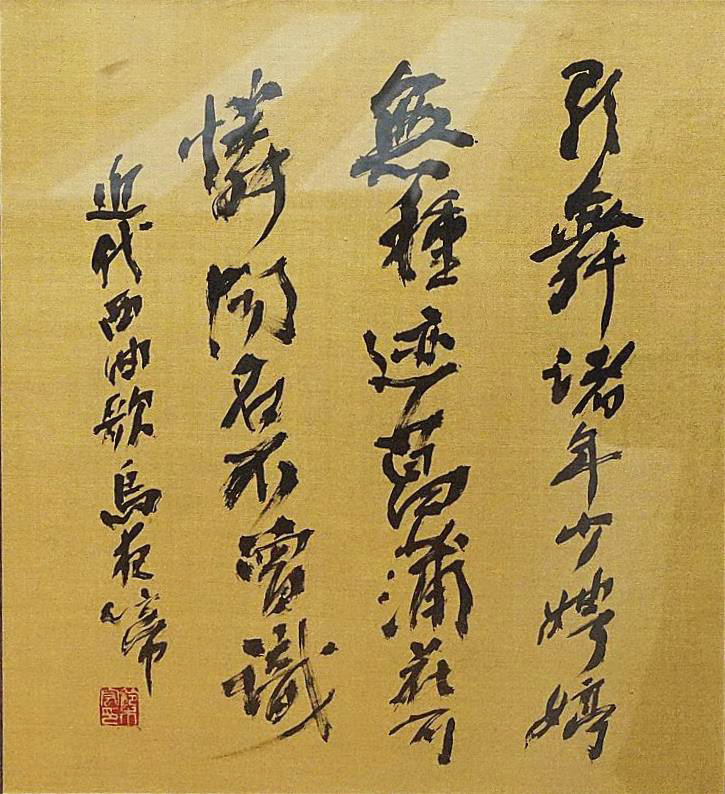 歌舞諸年少娉婷
無種迹菖蒲花可
憐聞名不曾識
近代西曲歌烏夜啼